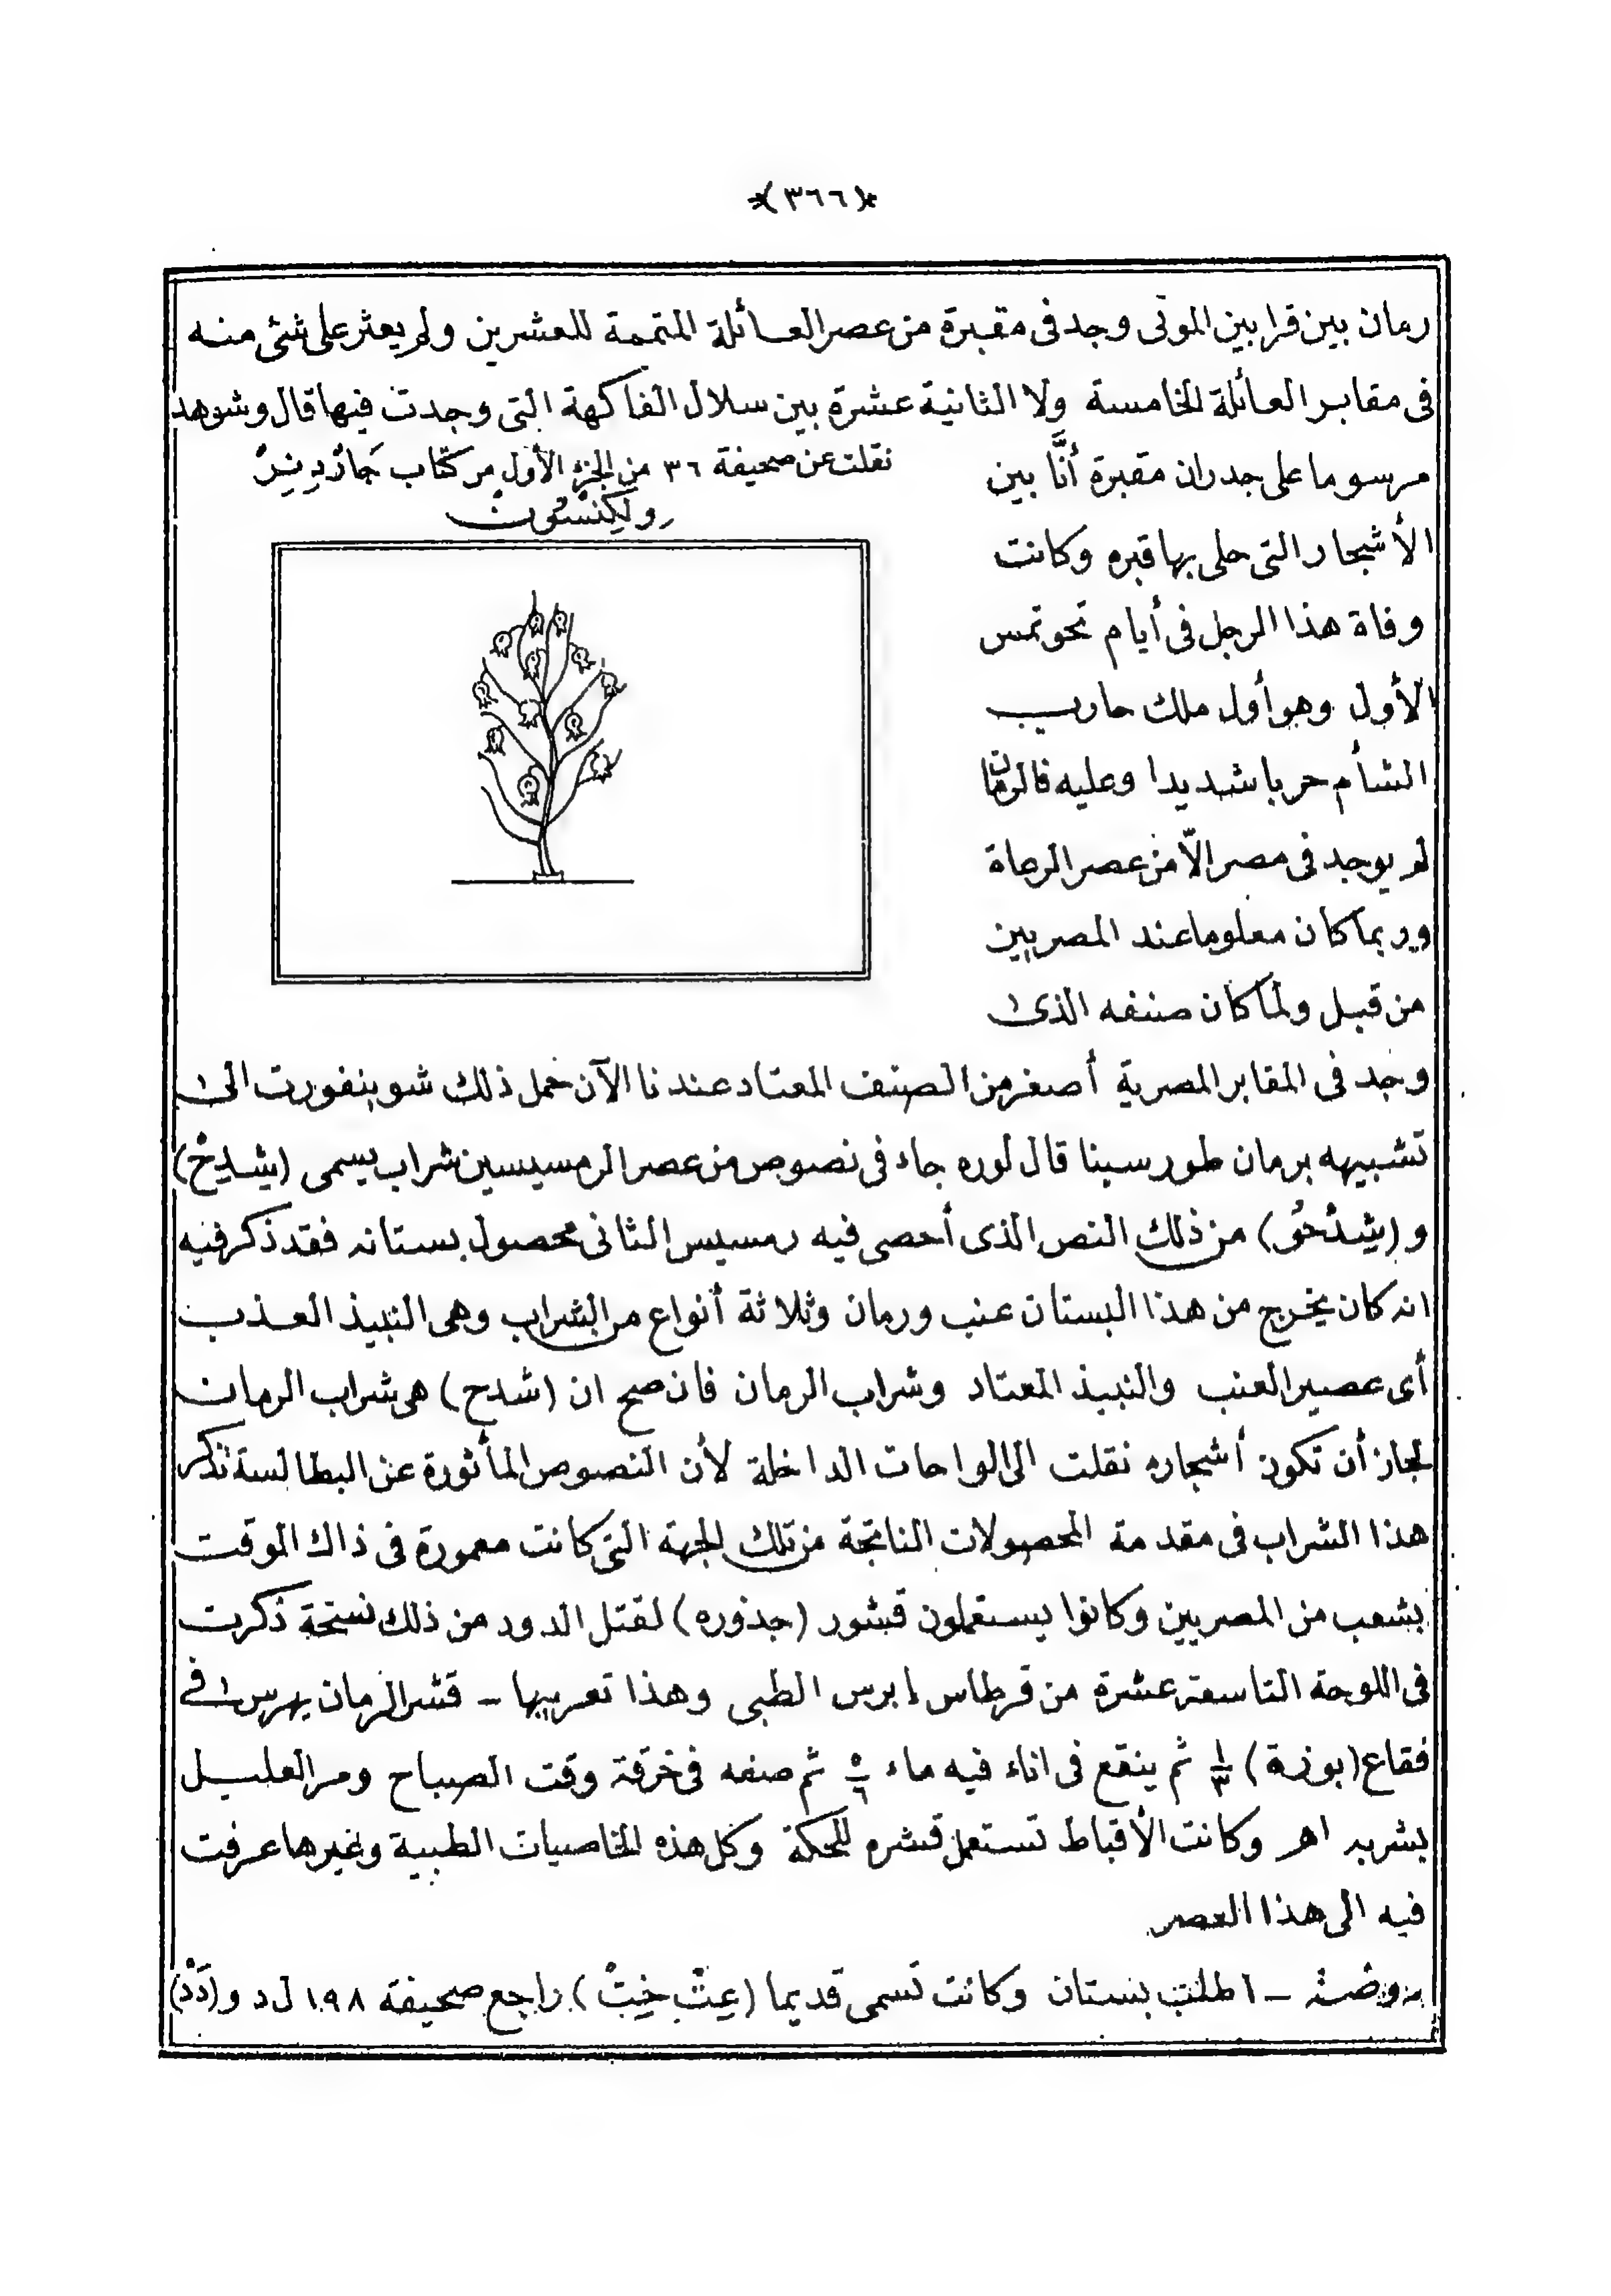 ﴿٣٦٦﴾
رمان بين قرابين الموتى وجد فى مقبرة من عصر العائلة المتممة للعشرين ولم يعثر على شئ منه
فى مقابر العائلة الخامسة ولا الثانية عشرة بين سلال الفاكهة التى وجدت فيها قال وشوهد
مرسوما على جدران مقبرة أنَّا بين
الأشجار التى حلى بها قبره وكانت
وفاة هذا الرجل فى أيام تحوتمس
الأول وهو أول ملك حارب
الشأم حربا شديدا وعليه فالرمان
لم يوجد فى مصر الّا من عصر الرعاة
وربما كان معلوما عند المصريين
من قبل ولما كان صنفه الذى
نقلت عن صحيفة ٣٦ من الجزء الأول من كتاب جَارْدِنِرْ
ولكنسون
وجد فى المقابر المصرية أصغر من الصنف المعتاد عندنا الآن حمل ذلك شوينفورت الى
تشبيهه برمان طور سينا قال لوره جاء فى نصوص من عصر الرمسيسين شراب يسمى (شدح)
و (شدحو) من ذلك النص الذى أحصى فيه رمسيس الثانى محصول بستانه فقد ذكر فيه
انه كان يخرج من هذا البستان عنب ورمان وثلاثة أنواع من الشراب وهى النبيذ العذب
أى عصير العنب والنبيذ المعتاد وشراب الرمان فان صح ان (شدح) هى شراب الرمان
لجاز أن تكون أشجاره نقلت الى الواحات الداخلة لأن النصوص المأثورة عن البطالسة تذكر
هذا الشراب فى مقدمة المحصولات الناتجة من تلك الجهة التى كانت معمورة فى ذاك الوقت
بشعب من المصريين وكانوا يستعملون قشور (جذوره) لقتل الدود من ذلك نسخة ذكرت
فى اللوحة التاسعة عشرة من قرطاس ابرس الطبى وهذا تعريبها – قشر الرمان يهرس فى
فقاع (بوزة) ١/٣ ثم ينقع فى اناء فيه ماء ٥/٦ ثم صفه فى خرقة وقت الصباح ومر العليل
بشربه اهـ وكانت الأقباط تستعمل قشره للحكة وكل هذه الخاصيات الطبية وغيرها عرفت
فيه الى هذا العصر
روضة – اطلب بستان وكانت تسمى قديما (عِتْ خِتْ) راجع صحيفة ١٩٨ ل د و (دَدْ)